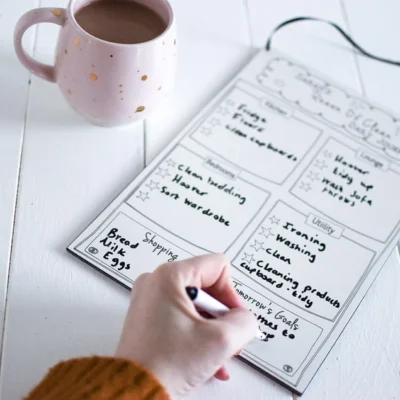 Queen Of Clean
Kitchen
Fridge
Floors
clean cupboards
Lounge
Hoover
tidy up
Wash sofa
throws
Bedrooms
Clean bedding
Hoover
Sort wardrobe
Utility
Ironing
Washing
Clean
Cleaning products
cupboard - tidy
Shopping
Bread
Milk
Eggs
Tomorrow's Goals
to